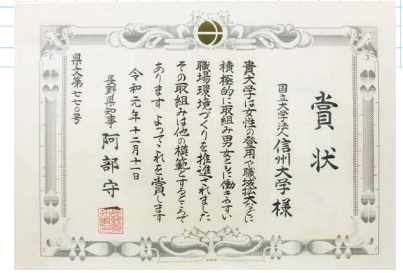 賞状
国立大学法人信州大学様
貴大学は女性の登用や職域拡大などに
積極的に取組み男女ともに働きやすい
職場環境づくりを推進されました
その取組みは他の模範とするところで
あります よってこれを賞します
令和元年十二月十一日
長野県知事 阿部守一
県文第七七〇号